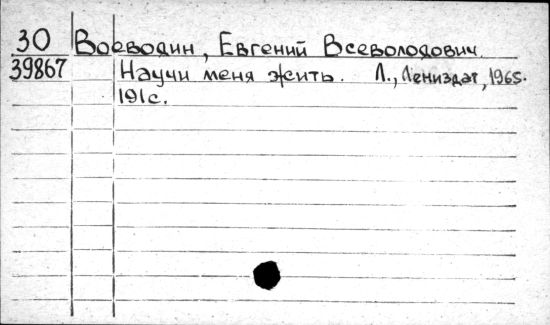 30 Воеводин, Евгений Всеволодович.
39867 Научи меня жить. Л., Лениздат, 1965.
191с.